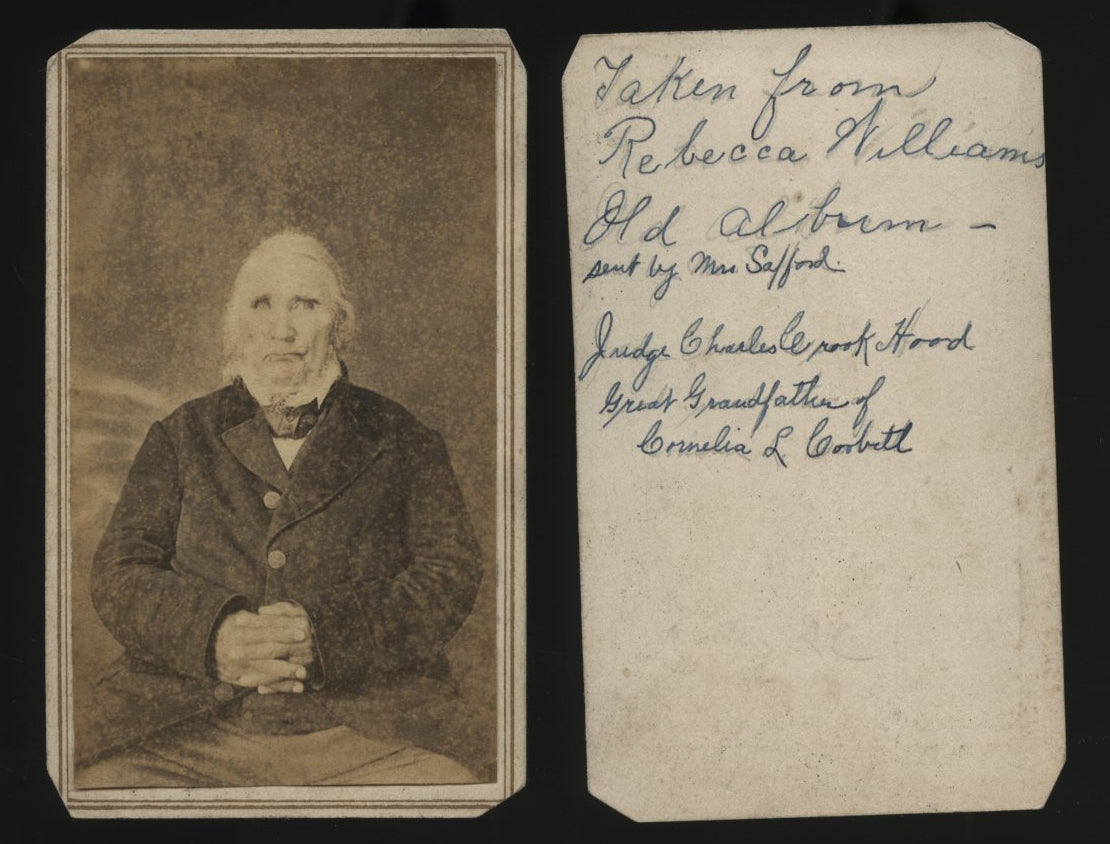 Taken from
Rebecca Williams
Old album -
sent by Mrs Safford.
Judge Charles Crook Hood
Great Grandfather of
Cornelia L. Corbett